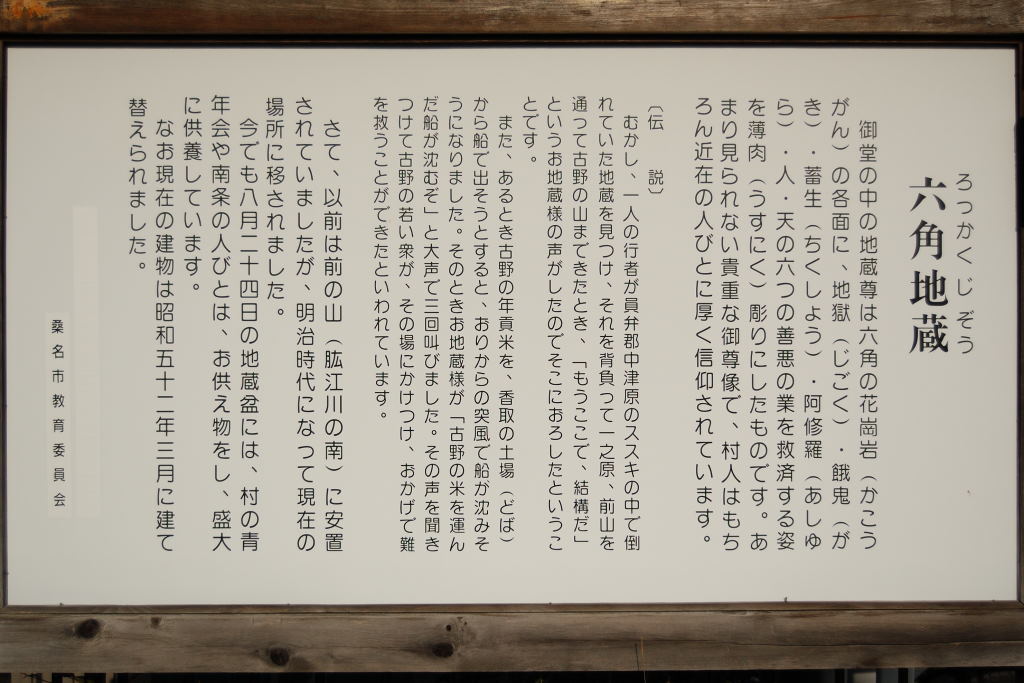 ろっかくじぞう
六角地蔵
御堂の中の地蔵尊は六角の花崗岩（かこう
がん）の各面に、地獄（じごく）・餓鬼（が
き）・蓄生（ちくしょう）・阿修羅（あしゅ
ら）・人・天の六つの善悪の業を救済する姿
を薄肉（うすにく）彫りにしたものです。あ
まり見られない貴重な御尊像で、村人はもち
ろん近在の人びとに厚く信仰されています。
〔伝　説〕
むかし、一人の行者が員弁郡中津原のススキの中で倒
れていた地蔵を見つけ、それを背負って一之原、前山を
通って古野の山まできたとき、「もうここで、結構だ」
というお地蔵様の声がしたのでそこにおろしたというこ
とです。
また、あるとき古野の年貢米を、香取の土場（どば）
から船で出そうとすると、おりからの突風で船が沈みそ
うになりました。そのときお地蔵様が「古野の米を運ん
だ船が沈むぞ」と大声で三回叫びました。その声を聞き
つけて古野の若い衆が、その場にかけつけ、おかげで難
を救うことができたといわれています。
さて、以前は前の山（肱江川の南）に安置
されていましたが、明治時代になって現在の
場所に移されました。
今でも八月二十四日の地蔵盆には、村の青
年会や南条の人びとは、お供え物をし、盛大
に供養しています。
なお現在の建物は昭和五十二年三月に建て
替えられました。
桑名市教育委員会